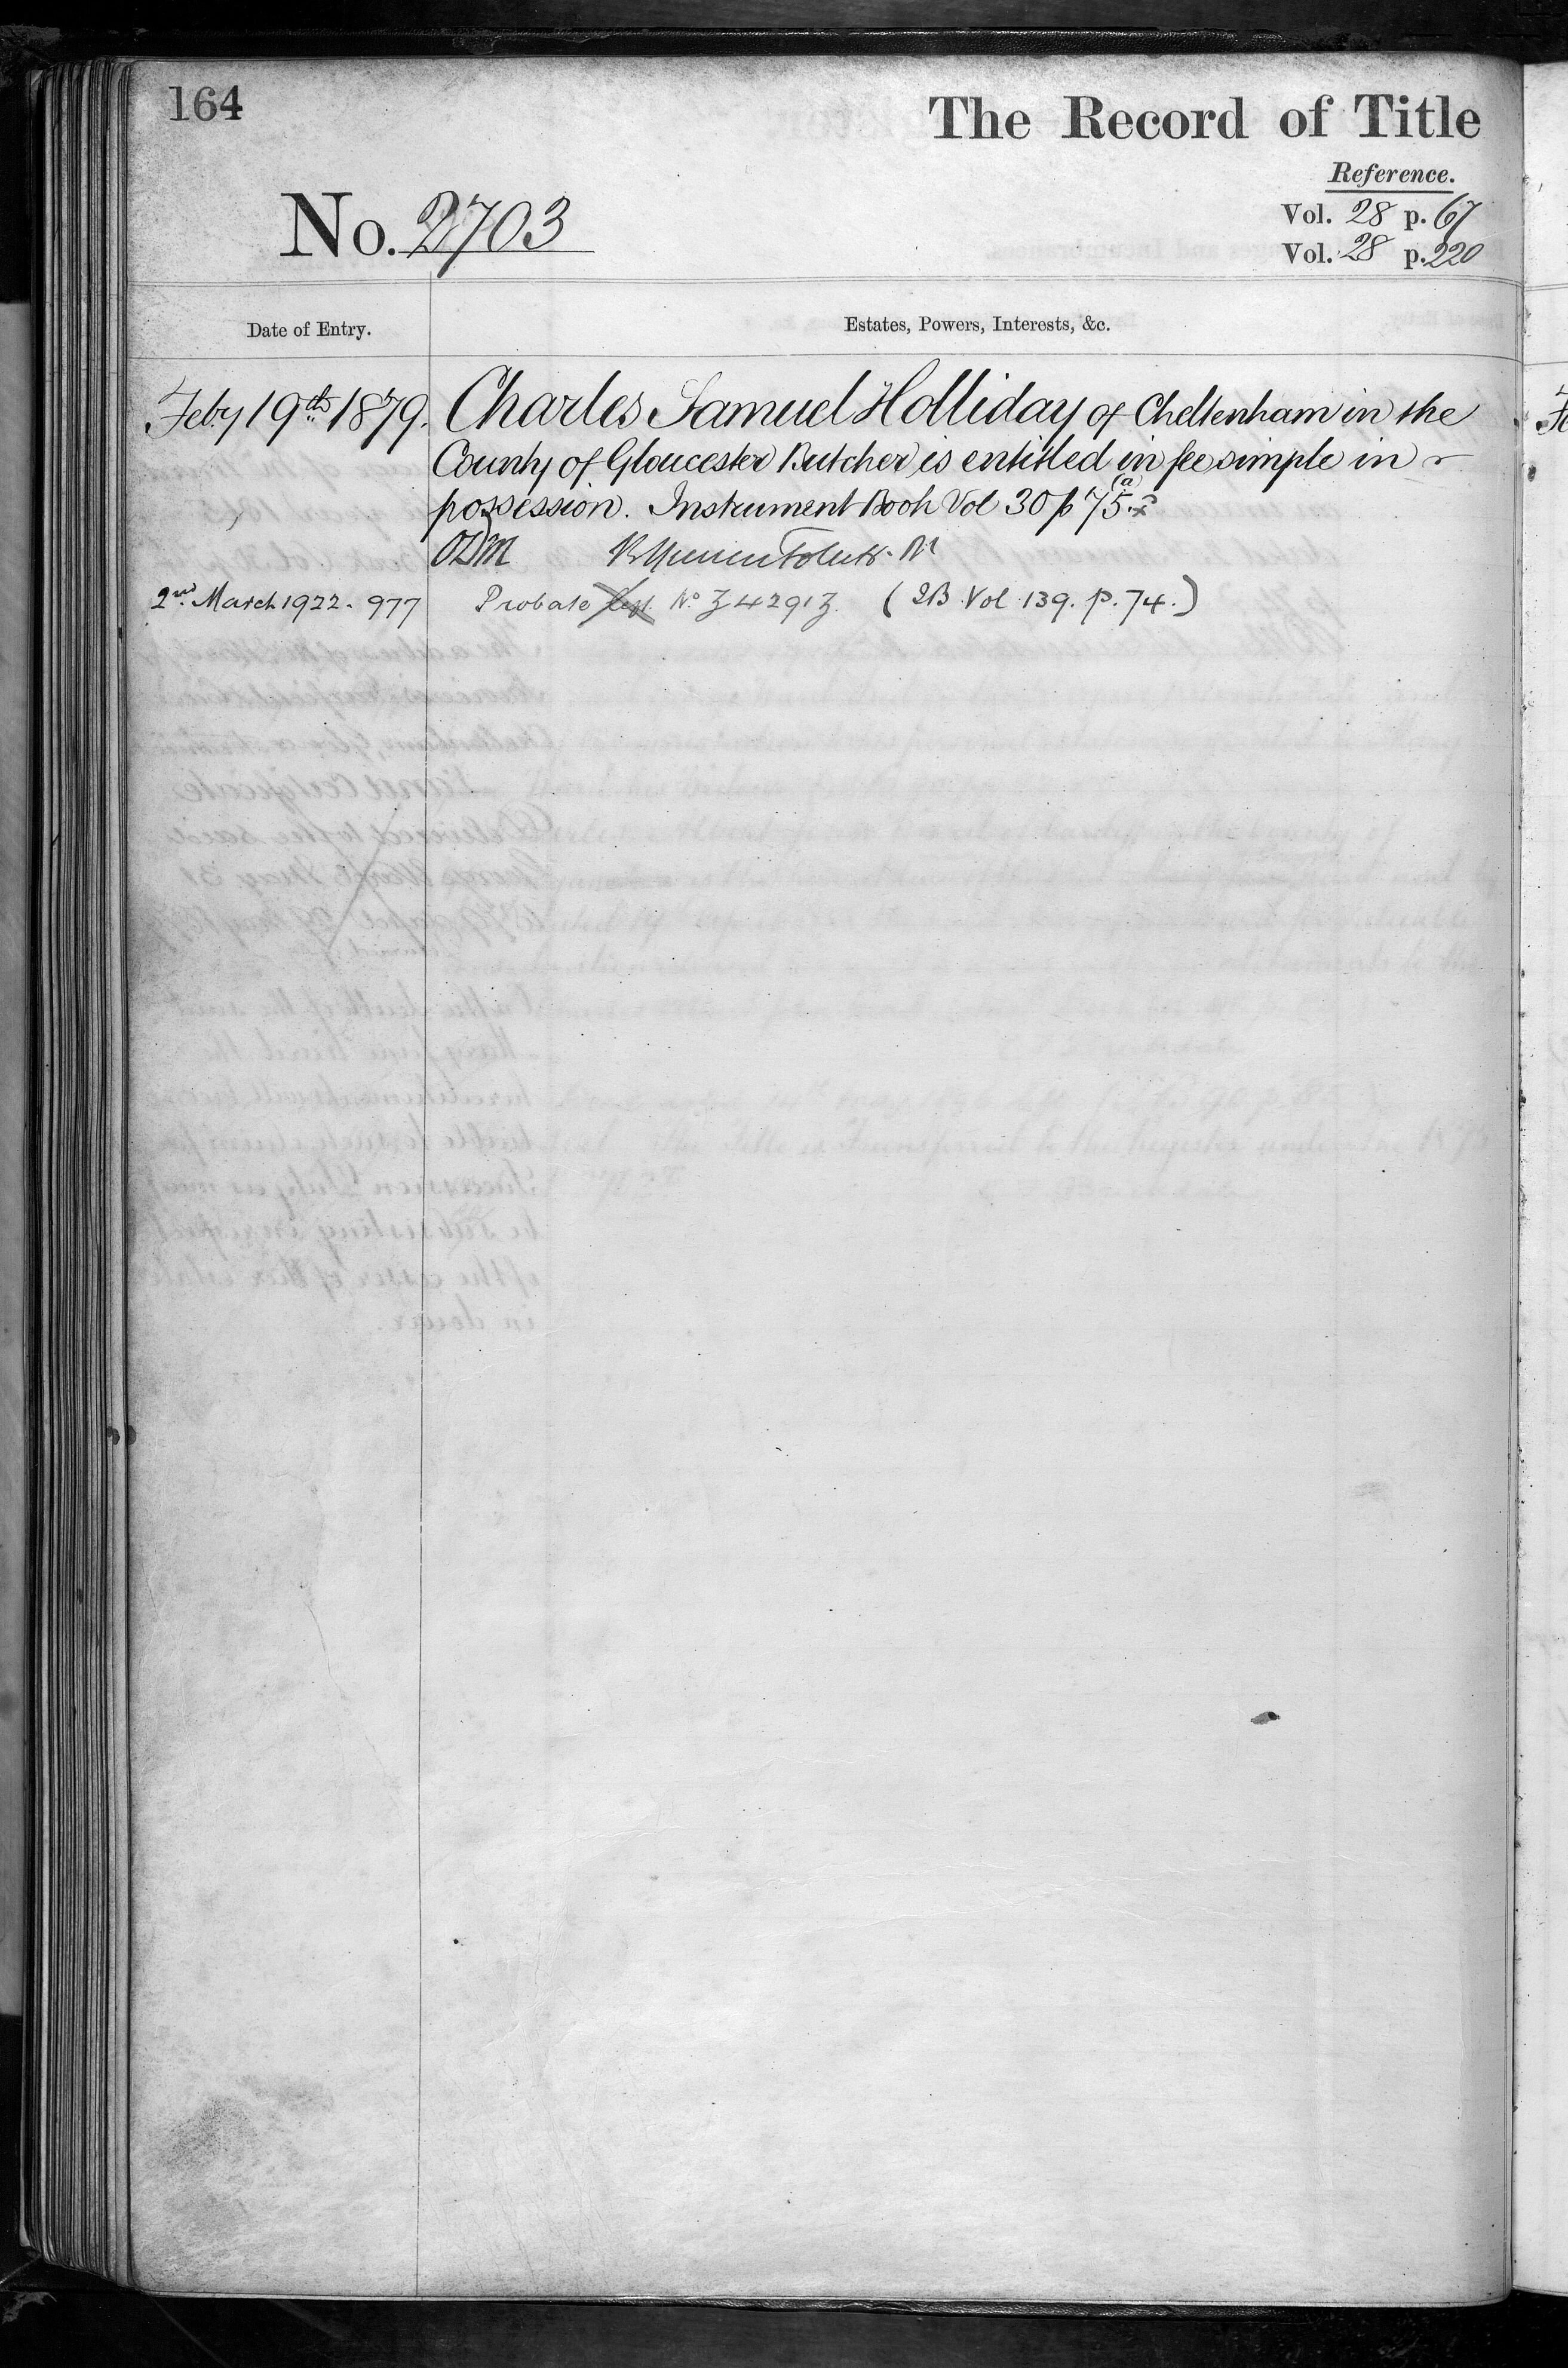 164
The Record of Title
Reference.
No. 2703
Vol. 28 p. 67
Vol. 28 p. 220
Date of Entry.
Estates, Powers, Interests, &c.
Feby 19th 1879. Charles Samuel Holliday of Cheltenham in the
County of Gloucester Butcher is entitled in fee simple in
possession. Instrument Book Vol 30 p 75. (a)
2nd March 1922. 977 Probate No Z 4291 Z. (IB Vol 139. p. 74.)